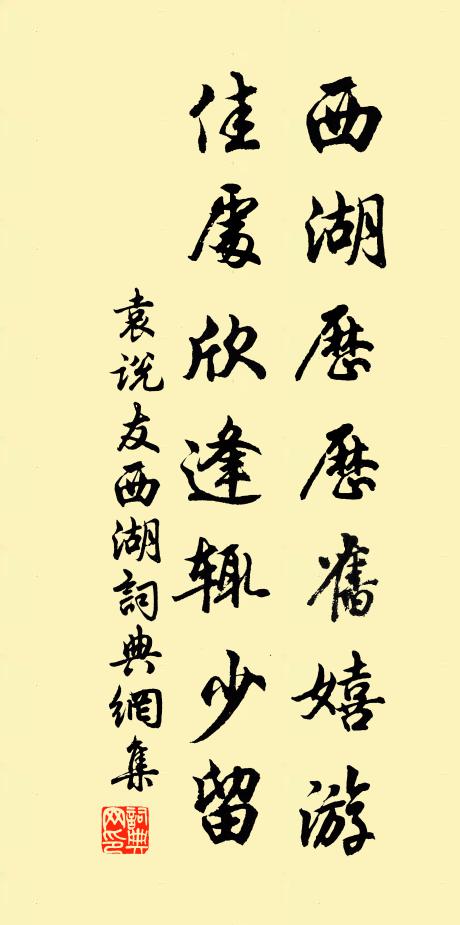 西湖歷歷舊嬉游
佳處欣逢輒少留
袁説友西湖詞典網集
詞典网印